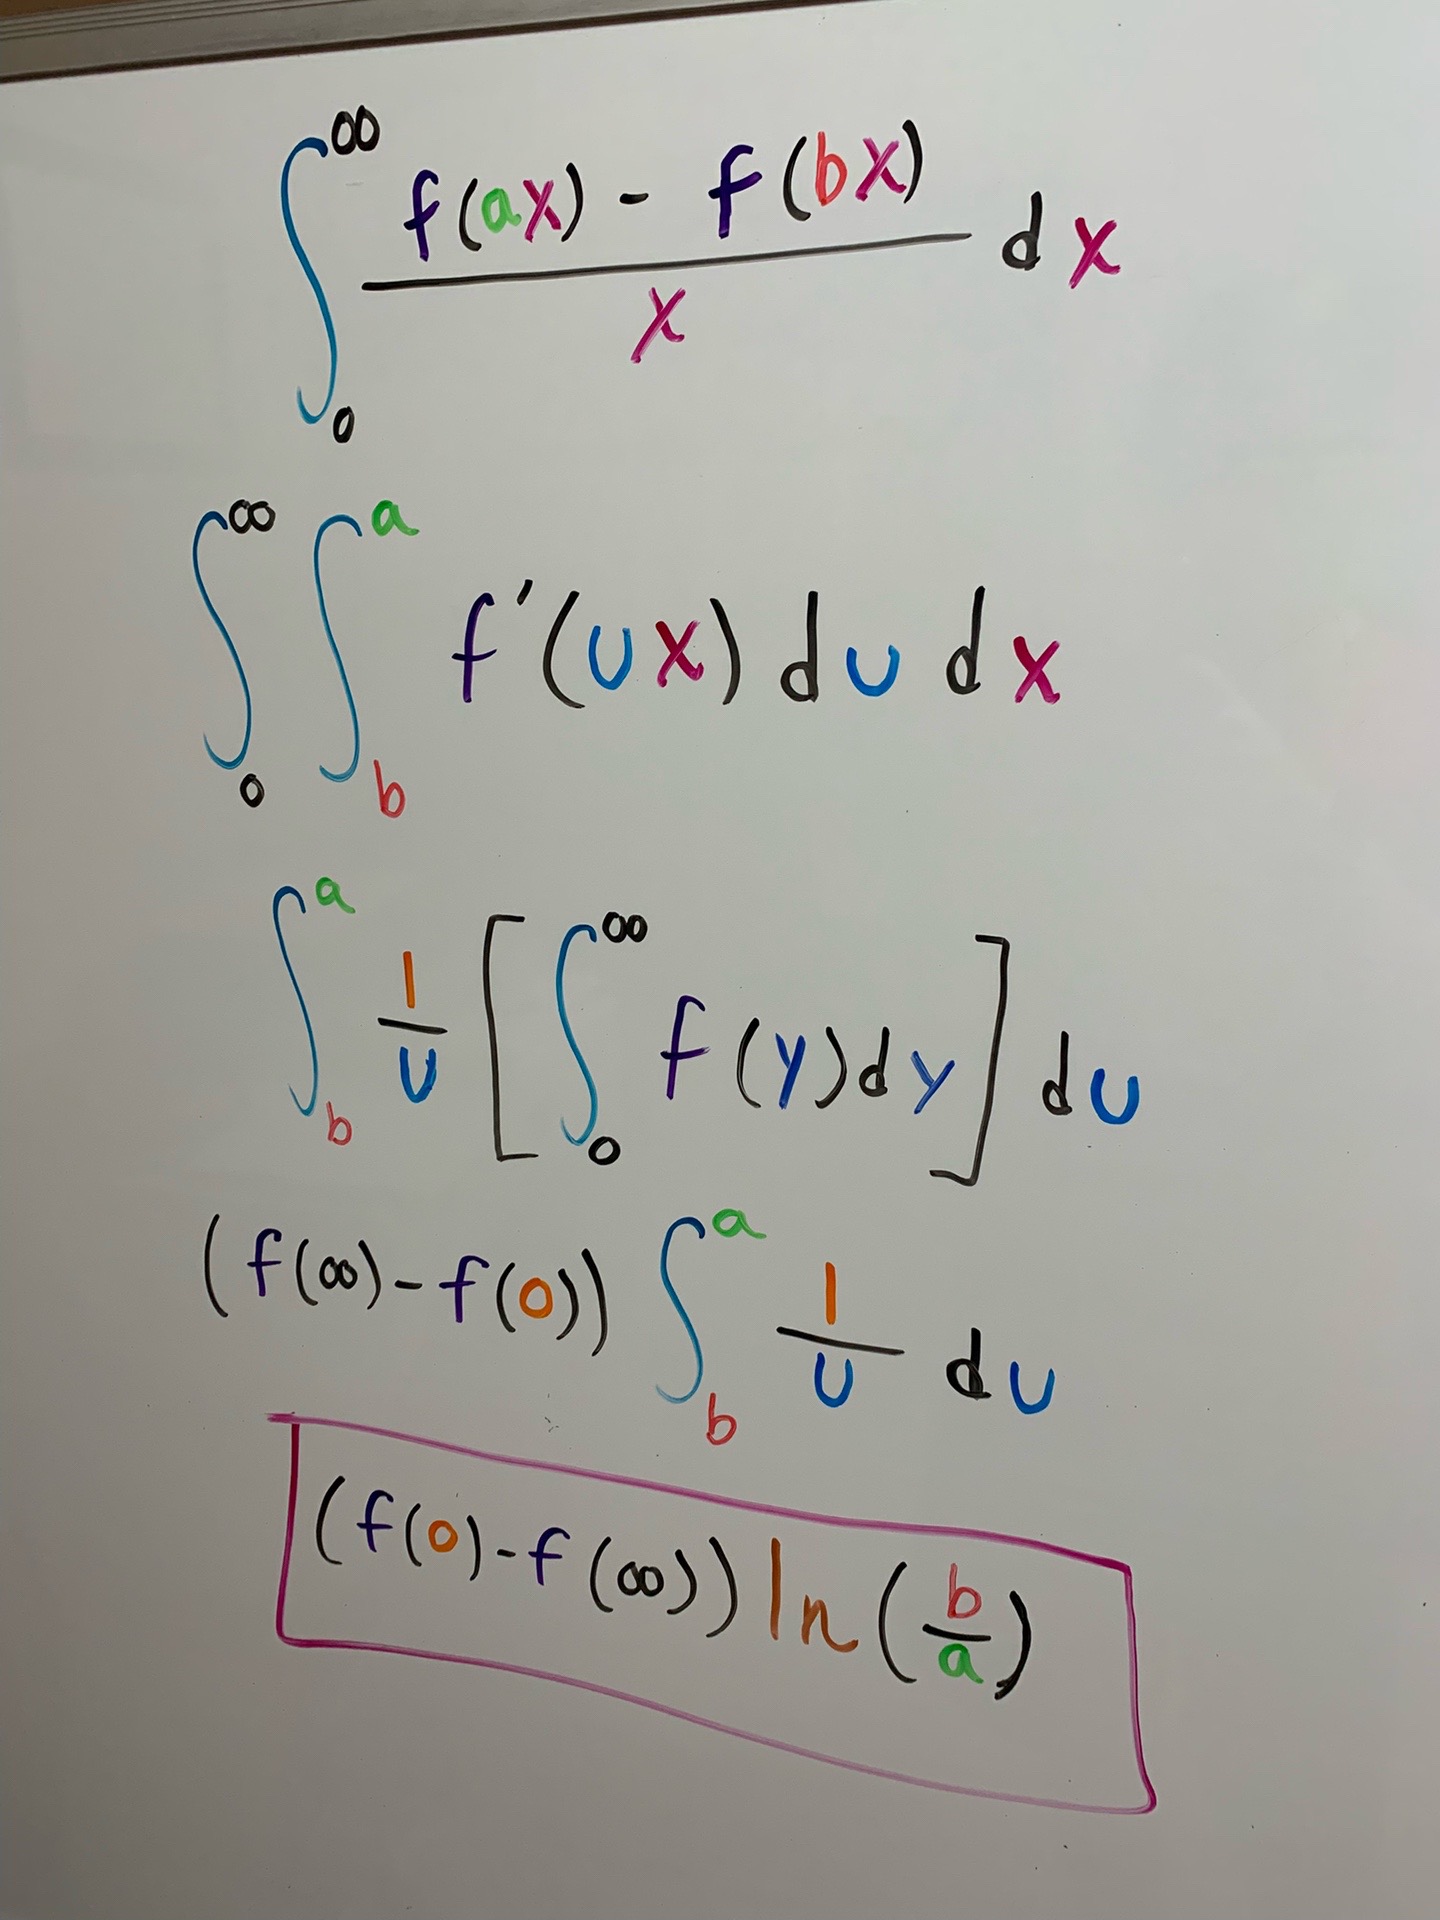 ∫₀^∞ (f(ax) - f(bx))/x dx
∫₀^∞ ∫_b^a f'(ux) du dx
∫_b^a 1/u [∫₀^∞ f(y)dy] du
(f(∞) - f(0)) ∫_b^a 1/u du
(f(0) - f(∞)) ln(b/a)